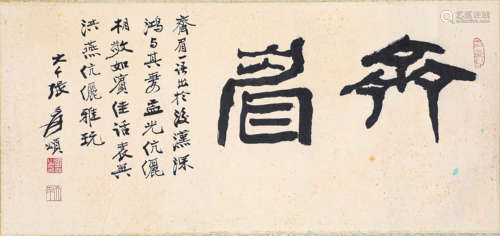 齊眉
齊眉一語出於後漢梁
鴻与其妻孟光伉儷
相敬如賓佳話袁興
洪燕伉儷雅玩
大千張爰頌